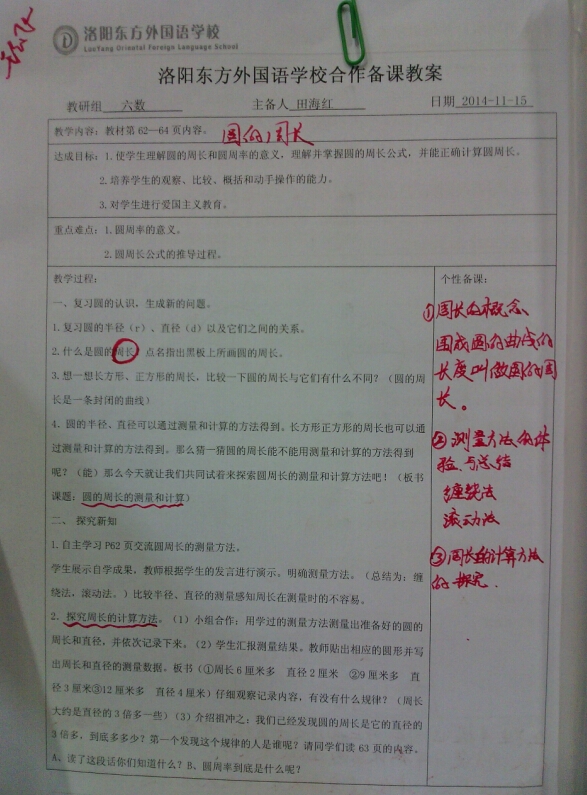 洛阳东方外国语学校
LuoYang Oriental Foreign Language School
洛阳东方外国语学校合作备课教案
教研组 六数 主备人 田海红 日期 2014-11-15
教学内容：教材第 62—64 页内容。 圆的周长
达成目标：1.使学生理解圆的周长和圆周率的意义，理解并掌握圆的周长公式，并能正确计算圆周长。
2.培养学生的观察、比较、概括和动手操作的能力。
3.对学生进行爱国主义教育。
重点难点：1.圆周率的意义。
2.圆周长公式的推导过程。
教学过程：
一、复习圆的认识，生成新的问题。
1.复习圆的半径（r）、直径（d）以及它们之间的关系。
2.什么是圆的周长？点名指出黑板上所画圆的周长。
3.想一想长方形、正方形的周长，比较一下圆的周长与它们有什么不同？（圆的周
长是一条封闭的曲线）
4.圆的半径、直径可以通过测量和计算的方法得到。长方形正方形的周长也可以通
过测量和计算的方法得到。那么猜一猜圆的周长能不能用测量和计算的方法得到
呢？（能）那么今天就让我们共同试着来探索圆周长的测量和计算方法吧！（板书
课题：圆的周长的测量和计算）
二、 探究新知
1.自主学习 P62 页交流圆周长的测量方法。
学生展示自学成果，教师根据学生的发言进行演示。明确测量方法。（总结为：缠
绕法，滚动法。）比较半径、直径的测量感知周长在测量时的不容易。
2．探究周长的计算方法。（1）小组合作：用学过的测量方法测量出准备好的圆的
周长和直径，并依次记录下来。（2）学生汇报测量结果。教师贴出相应的圆形并写
出周长和直径的测量数据，板书（①周长 6 厘米多 直径 2 厘米 ②9 厘米多 直
径 3 厘米③12 厘米多 直径 4 厘米）仔细观察记录内容，有没有什么规律？（周长
大约是直径的 3 倍多一些）（3）介绍祖冲之：我们已经发现圆的周长是它的直径的
3 倍多，到底多多少？第一个发现这个规律的人是谁呢？请同学们读 63 页的内容。
A、读了这段话你们知道什么？B、圆周率到底是什么呢？
个性备课：
①周长的概念
围成圆的曲线的
长度叫做圆的周
长。
②测量方法的体
验与总结
缠绕法
滚动法
③周长的计算方法
的探究.